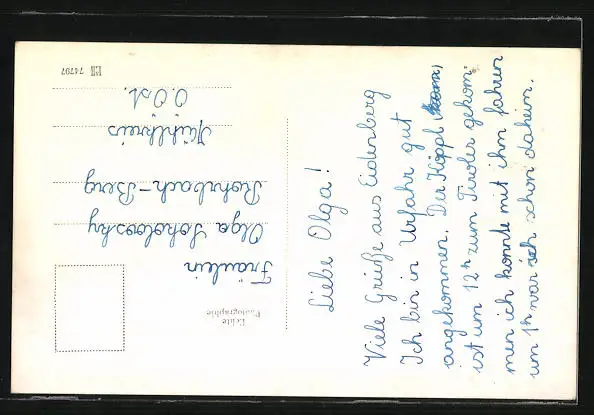 Liebe Olga!
Viele Grüße aus Eidenberg
Ich bin in Urfahr gut
angekommen. Der Köppl
ist um 12h zum Tiroler gekom-
men ich konnte mit ihm fahren
um 1h war ich schon daheim.
Echte
Photographie
Fräulein
Olga Sokolowsky
Rohrbach-Berg
Mühlkreis
O.Öst.
74797